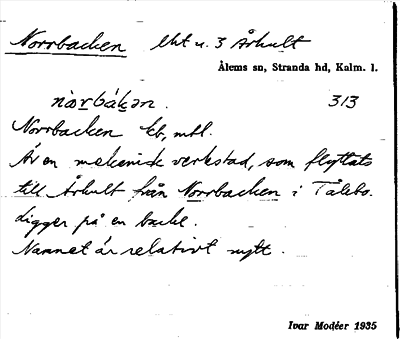 Norrbacken lht u. 3 Århult
Ålems sn, Stranda hd, Kalm. l.
nòrbákan. 313
Norrbacken Eb, mtl.
Även mekanisk verkstad, som flyttats
till Århult från Norrbacken i Tålebo.
Ligger på en backe.
Namnet är relativt nytt.
Ivar Modéer 1935